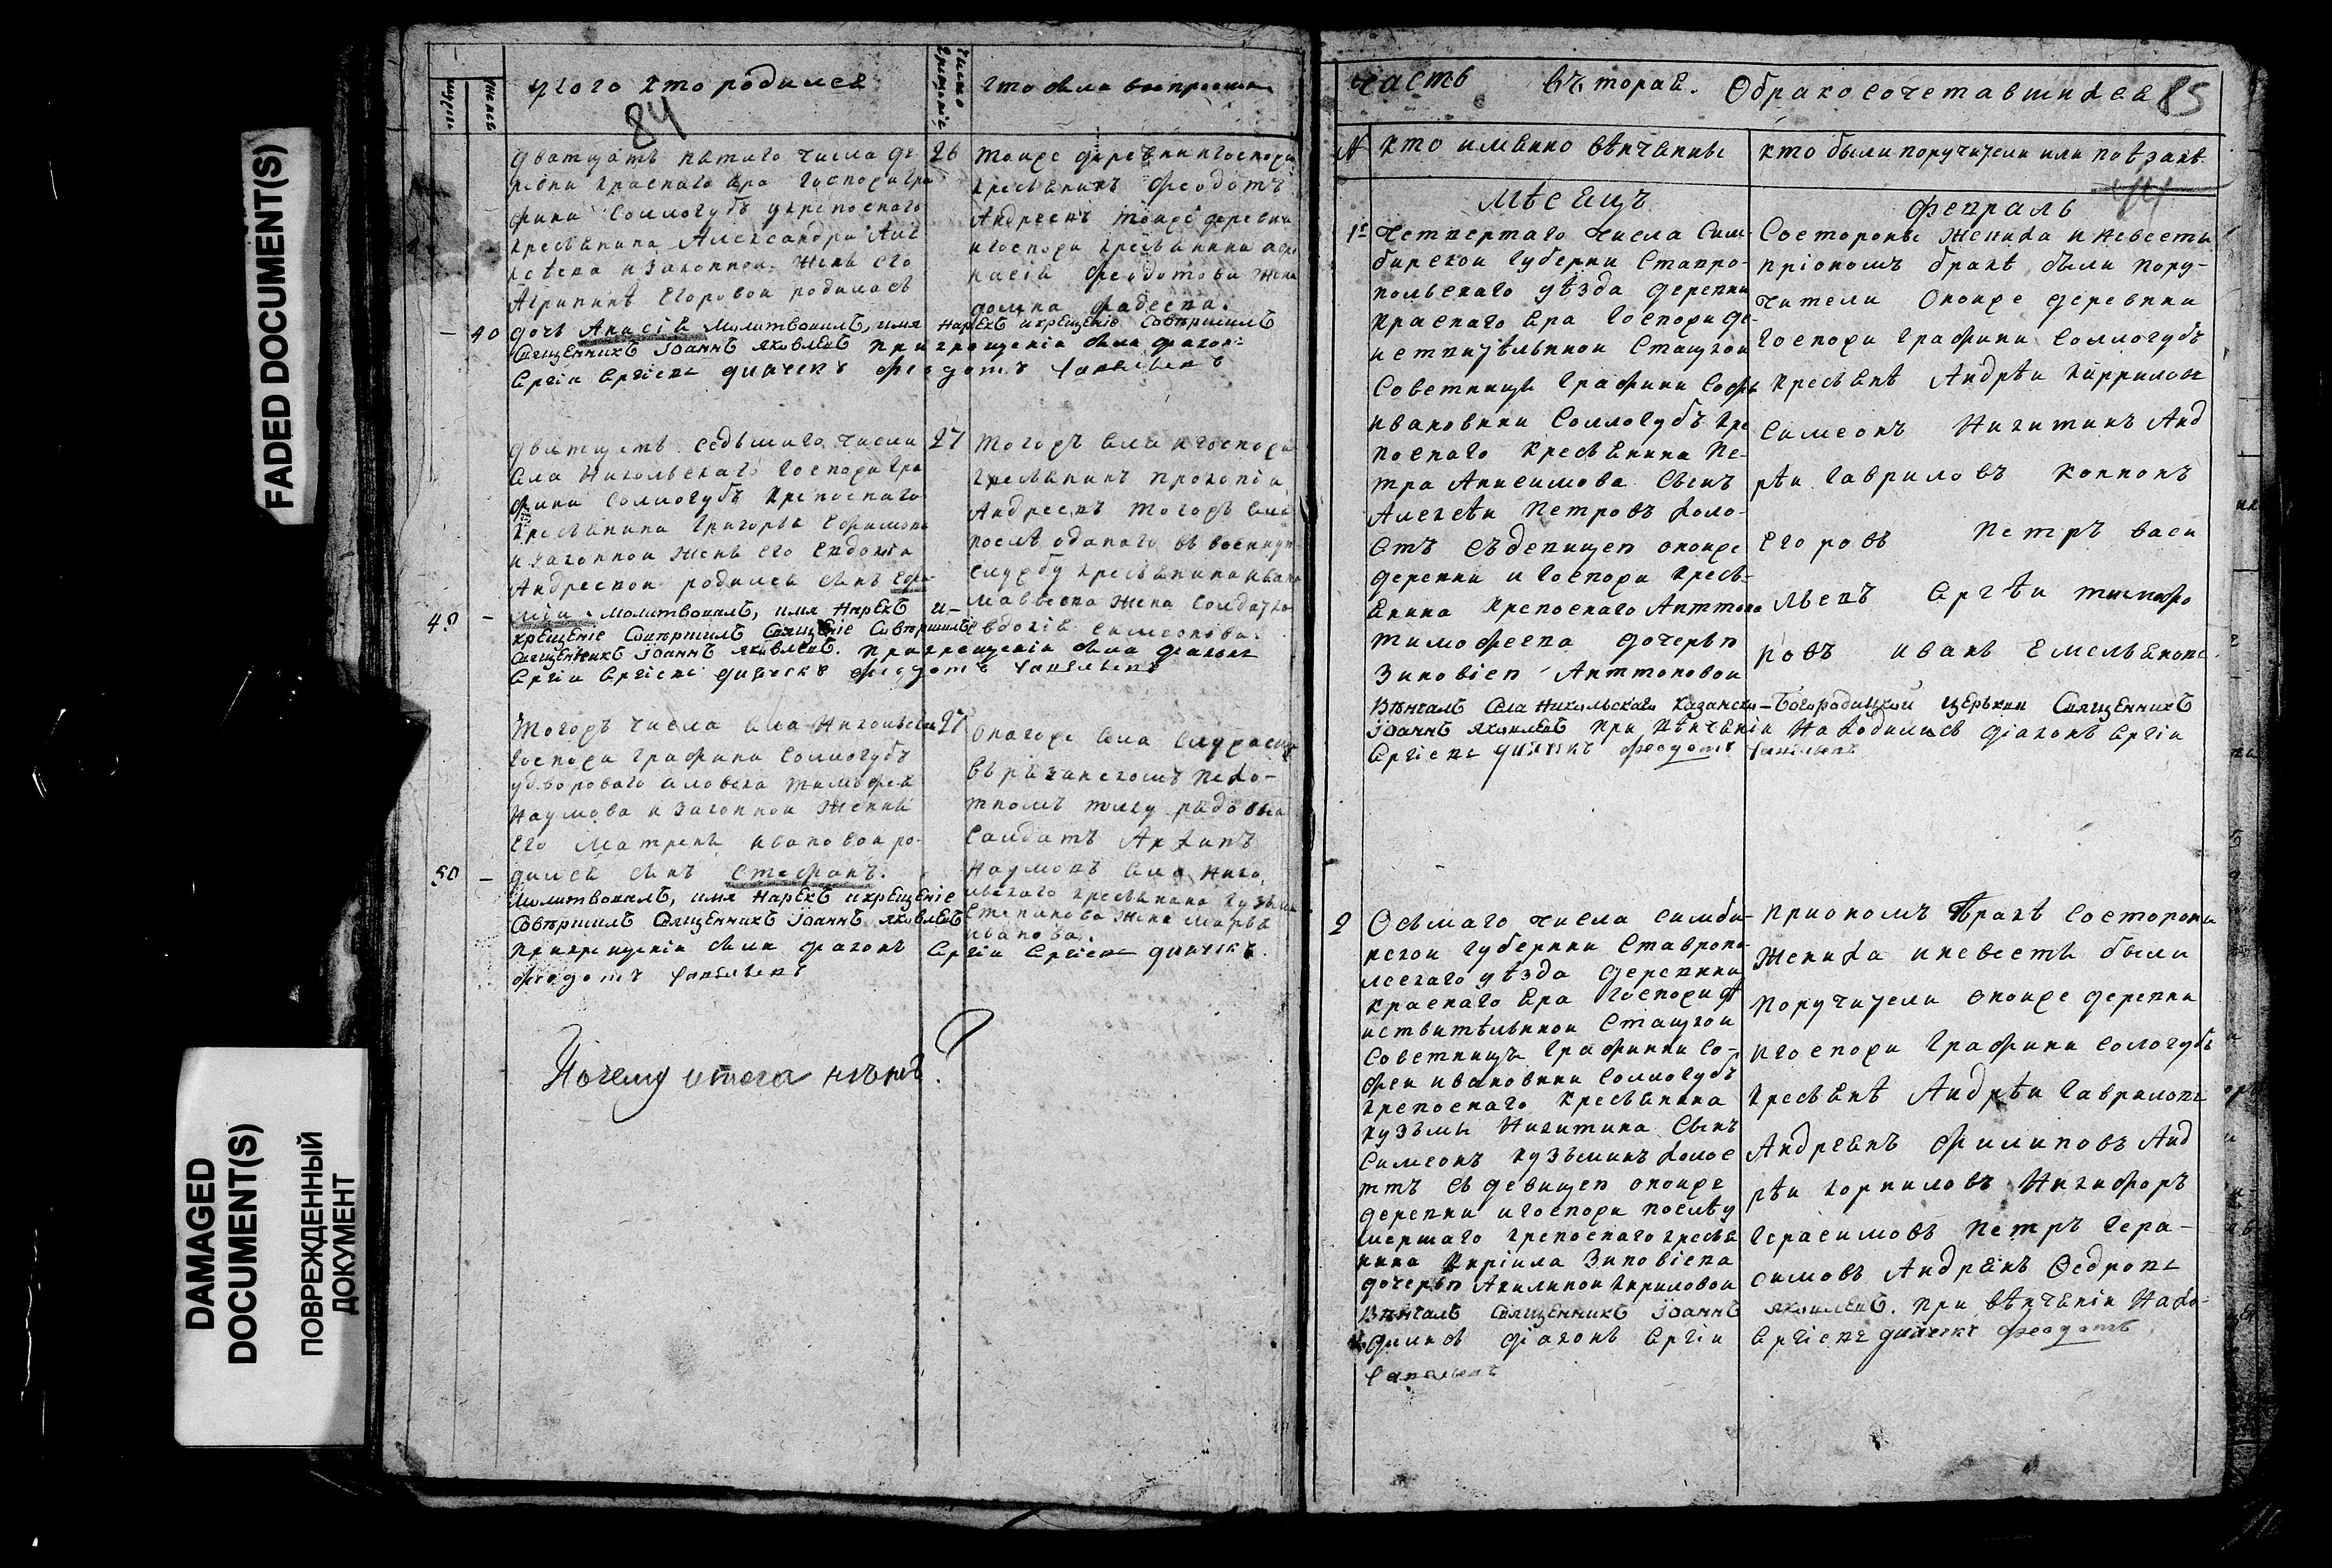 FADED DOCUMENT(S)
DAMAGED
DOCUMENT(S)
ПОВРЕЖДЕННЫЙ
ДОКУМЕНТ
у кого кто родился
84
Число крещенiя
кто были воспрiемни
дватцать пятаго числа де
ревни краснаго яра госпожи гра
фини Соллогубъ крепоснаго
кресьянина Александра Але
ксѣева и законной жены его
Агрипинѣ Егоровой родилась
40 дочь Анисiя Молитвовалъ, имя Нарекъ и крещенiе Совѣршилъ
Священникъ Iоаннъ Яковлевъ при крещенiи были дiакон
Сергiи Сергiевъ дьячекъ феодотъ Савельевъ
26
тоиже деревни и госпожи
кресьянинъ феодотъ
Андреевъ тоиже деревни
и госпожи кресьянина
феодотова жена
фадеева.
дватцать седьмаго числа
села Никольскаго госпожи гра
фини Соллогубъ крепоснаго
кресьянина Григорья Ефимова
и законной жены его Евдокiи
Андреевой родился сынъ Ефи
49 мiи Молитвовалъ, имя Нарекъ и
крещенiе Совѣршилъ Священiе Совѣршилъ
Священникъ Iоаннъ Яковлевъ. при крещенiи были дiаконъ
Сергiи Сергiевъ дьячекъ феодотъ Савельевъ
27
тогожъ села и госпожи
кресьянинъ прокопiи
Андреевъ тогожъ села
после отданаго въ воен
службу кресьянина ивана
жена Солдатка
Евдокiя Симеонова.
Тогожъ числа села Никольска
госпожи графини Соллогубъ
у двороваго человека тимофея
Наумова и законной жены
его Матрены ивановой ро-
50 дился сынъ Стефанъ.
Молитвовалъ, имя Нарекъ и крещенiе
Совѣршилъ Священникъ Iоаннъ Яковлевъ
при крещенiи были дiаконъ Сергiи Сергiевъ дьячекъ
феодотъ Савельевъ
27
въ рязанскомъ пехо-
тномъ полку рядовы
Солдатъ Архипъ
Наумовъ села Нико
льскаго кресьянина Кузьмы
Степанова жена Марья
иванова.
Почему итога нѣтъ?
часть въторая. О бракосочетавшихся
85
№
кто именно вѣнчанны
кто были поручители или поѣзжане
44
Мѣсецъ
февраль
1е Четвертаго числа Сим-
бирской губерни Ставро-
польскаго уѣзда деревни
Краснаго яра госпожи де-
иствителънои Стацкои
Советницы графини Софьи
ивановны Соллогубъ кре
поснаго кресьянина Пе-
тра Анисимова Сынъ
Алексѣи Петровъ холо-
стъ съ девицеи оноиже
деревни и госпожи кресь-
янина крепоснаго Антона
Тимофеева дочерью
Зиновiеи Антоновои
Со стороны жениха и невесты
при ономъ бракѣ были пору-
чители оноиже деревни
госпожи графини Соллогубъ
кресьянѣ Андрѣи Кирриловъ
Симеонъ Никитинъ Анд
рѣи Гавриловъ Кононъ
Егоровъ Петръ васи
льевъ Сергѣи тимофе
ровъ иванъ Емельяновъ.
Вѣнчалъ Села Никольскаго Казанско-Богородицкой церкви Священникъ
Iоаннъ Яковлевъ при вѣнчанiи Находились дiаконъ Сергiи
Сергiевъ дьячекъ феодотъ Савельевъ
2 Осьмаго числа симби-
рскои губернии Ставропо-
льскаго уѣзда деревни
Краснаго яра госпожи дѣ
иствителънои Стацкои
Советницы графини Со-
феи ивановны Соллогубъ
крепоснаго кресьянина
Кузьмы Никитина Сынъ
Симеонъ Кузьминъ холос
тъ съ девицеи оноиже
деревни и госпожи послѣ у
мершаго крепоснаго кресья
нина Кирiила Зиновiева
дочерью Акилинои Кириловои
при ономъ бракѣ со стороны
жениха и невесты были
поручители оноиже деревни
и госпожи графини Сологубъ
кресьянѣ Андрѣи Гавриловъ
Андреянъ Филиповъ Анд
рѣи Корниловъ Никифоръ
Герасимовъ Петръ Гера-
симовъ Андреянъ Ѳедровъ
Вѣнчалъ Священникъ Iоаннъ Яковлевъ. при вѣнчанiи Нахо-
дились дiаконъ Сергiи Сергiевъ дьячекъ феодотъ
Савельевъ